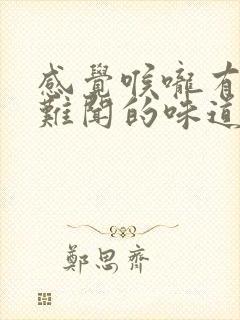 感覺喉嚨有
難聞的味道
鄭思齊